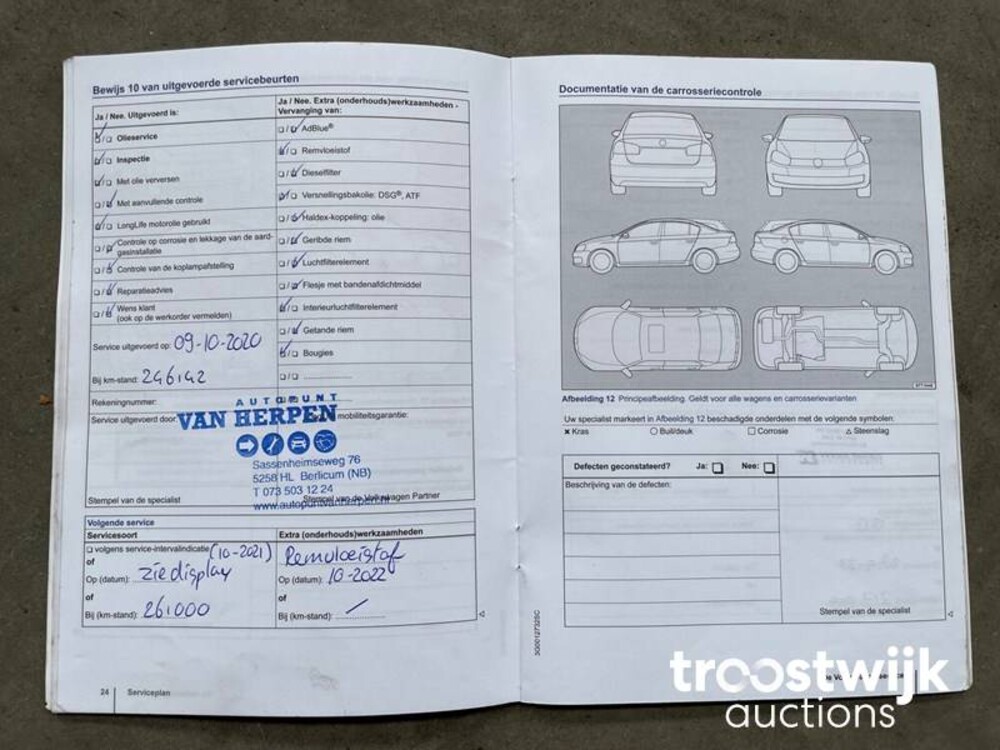 Bewijs 10 van uitgevoerde servicebeurten
Ja / Nee. Uitgevoerd is:
Olieservice
Inspectie
Met olie verversen
Met aanvullende controle
LongLife motorolie gebruikt
Controle op corrosie en lekkage van de aard-
gasinstallatie
Controle van de koplampafstelling
Reparatieadvies
Wens klant
(ook op de werkorder vermelden)
Service uitgevoerd op: 09-10-2020
Bij km-stand: 246142
Rekeningnummer:
Service uitgevoerd door:
Stempel van de specialist
Ja / Nee. Extra (onderhouds)werkzaamheden -
Vervanging van:
AdBlue®
Remvloeistof
Dieselfilter
Versnellingsbakolie: DSG®, ATF
Haldex-koppeling: olie
Geribde riem
Luchtfilterelement
Flesje met bandenafdichtmiddel
Interieurluchtfilterelement
Getande riem
Bougies
mobiliteitsgarantie:
Stempel van de Volkswagen Partner
AUTOPUNT
VAN HERPEN
Sassenheimseweg 76
5258 HL Berlicum (NB)
T 073 503 12 24
www.autopuntvanherpen.nl
Volgende service
Servicesoort
volgens service-intervalindicatie (10-2021)
of
Op (datum): zie display
of
Bij (km-stand): 261000
Extra (onderhouds)werkzaamheden
Remvloeistof
Op (datum): 10-2022
of
Bij (km-stand): /
24 Serviceplan
Documentatie van de carrosseriecontrole
Afbeelding 12 Principeafbeelding. Geldt voor alle wagens en carrosserievarianten
Uw specialist markeert in Afbeelding 12 beschadigde onderdelen met de volgende symbolen:
Kras Buil/deuk Corrosie Steenslag
Defecten geconstateerd? Ja: Nee:
Beschrijving van de defecten:
Stempel van de specialist
troostwijk
auctions